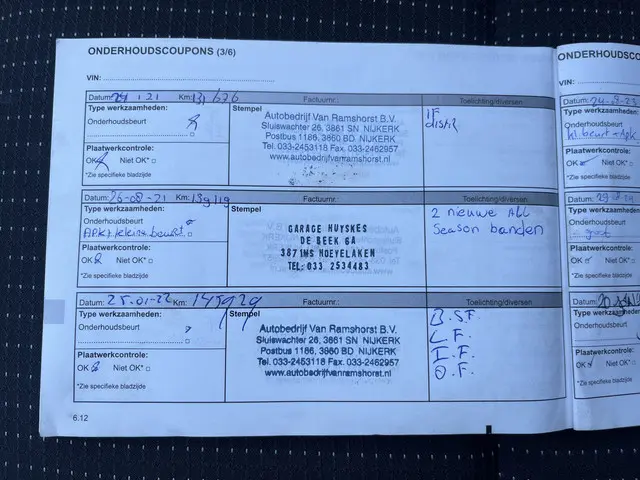 ONDERHOUDSCOUPONS (3/6)
VIN:
Datum: 21 Km:
Factuurnr.:
Toelichting/diversen
Type werkzaamheden:
Stempel
Onderhoudsbeurt
Plaatwerkcontrole:
OK Niet OK*
*Zie specifieke bladzijde
Autobedrijf Van Ramshorst B.V.
Sluiswachter 26, 3861 SN NIJKERK
Postbus 1186, 3860 BD NIJKERK
Tel. 033-2453118 Fax. 033-2462957
www.autobedrijfvanramshorst.nl
IF
Datum: 26-08-21 Km: 139119
Factuurnr.:
Toelichting/diversen
Type werkzaamheden:
Stempel
Onderhoudsbeurt
APK + kleine beurt
Plaatwerkcontrole:
OK Niet OK*
*Zie specifieke bladzijde
GARAGE HUYSKES
DE BEEK 6A
3871MS HOEVELAKEN
TEL: 033 2534483
2 nieuwe All
Season banden
Datum: 25-01-22 Km: 145929
Factuurnr.:
Toelichting/diversen
Type werkzaamheden:
Stempel
Onderhoudsbeurt
Plaatwerkcontrole:
OK Niet OK*
*Zie specifieke bladzijde
Autobedrijf Van Ramshorst B.V.
Sluiswachter 26, 3861 SN NIJKERK
Postbus 1186, 3860 BD NIJKERK
Tel. 033-2453118 Fax. 033-2462957
www.autobedrijfvanramshorst.nl
B.S.F.
L.F.
I.F.
O.F.
6.12
ONDERHOUDSCO
VIN:
Datum:
Type werkzaamheden:
Onderhoudsbeurt
kl. beurt + Apk
Plaatwerkcontrole:
OK Niet OK*
*Zie specifieke bladzijde
Datum:
Type werkzaamheden:
Onderhoudsbeurt
groot
Plaatwerkcontrole:
OK Niet OK*
*Zie specifieke bladzijde
Datum:
Type werkzaamheden:
Onderhoudsbeurt
Plaatwerkcontrole:
OK Niet OK*
*Zie specifieke bladzijde